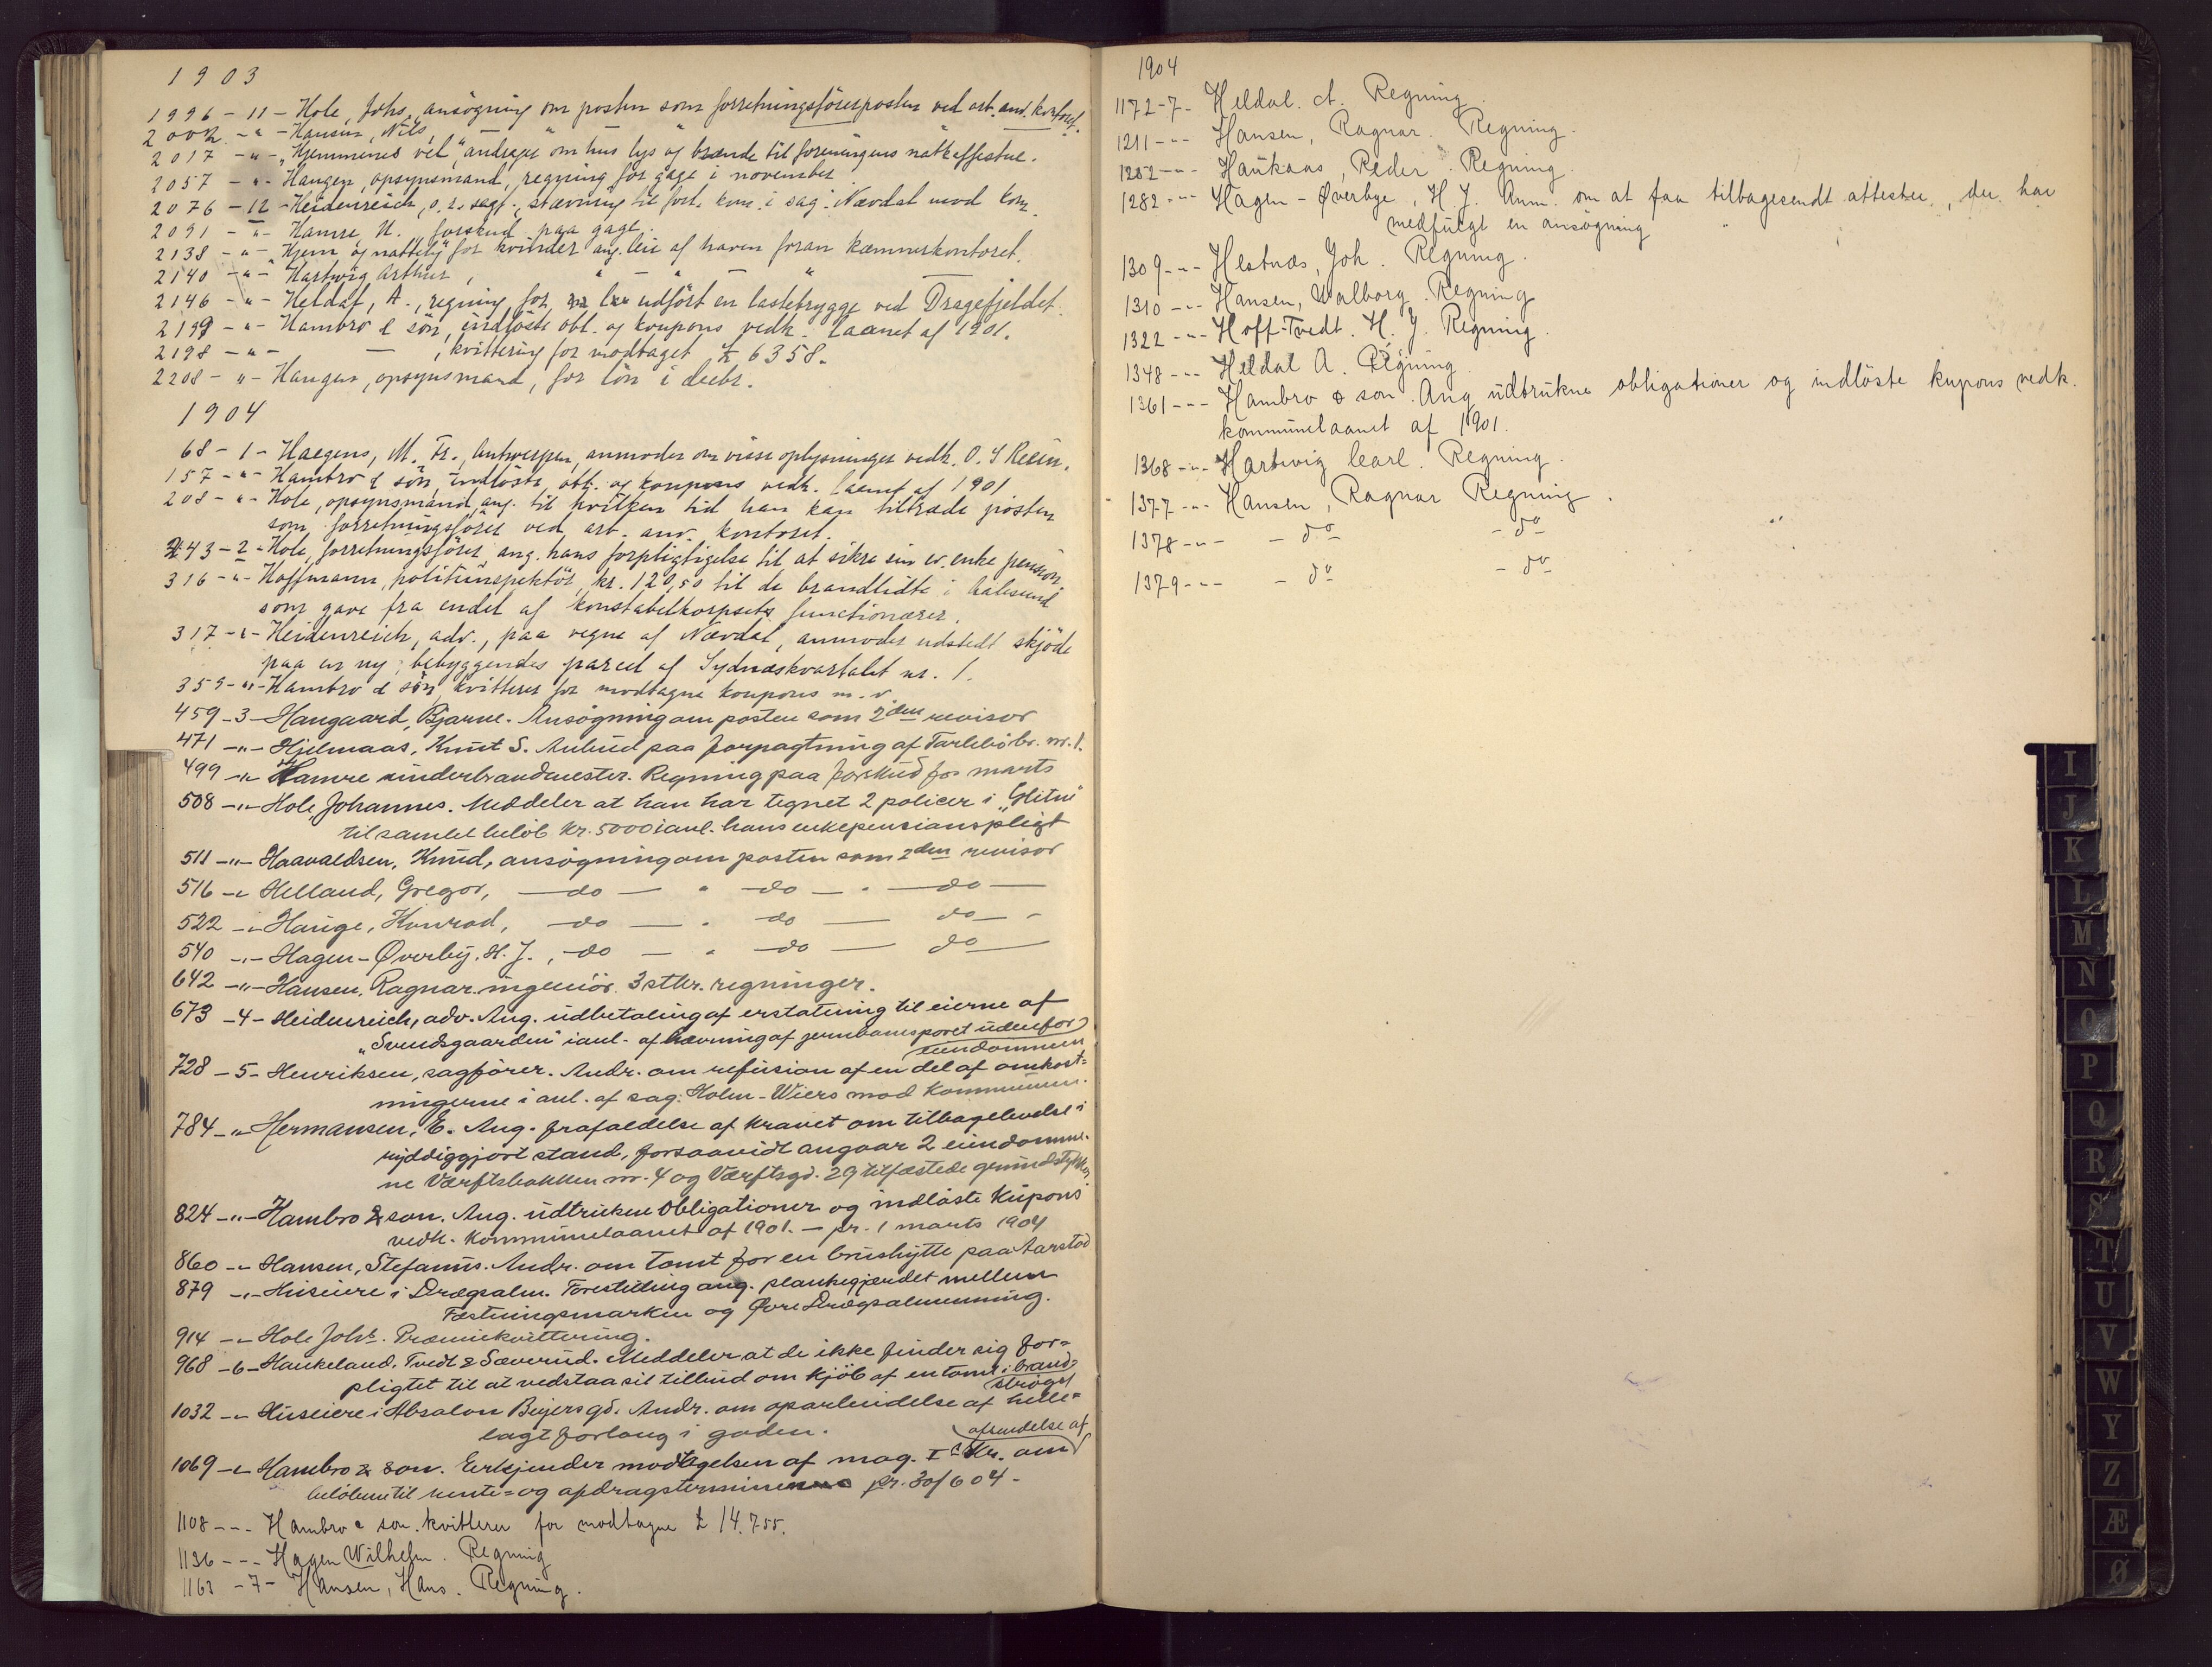 1903
1996 - 11 - Hole, Johs, ansøgning om posten som forretningsförerposten ved arb. anv. kontoret.
2002 - " - Hansen, Nils, " " "
2017 - " - "Hjemmenes vel", andrager om hus lys og brænde til foreningens natkaffestue.
2057 - " - Haugen, opsynsmand, regning for gage i november.
2076 - 12 - Heidenreich, o.r. sagf., stævning til forl. kom. i sag: Nævdal mod kom.
2091 - " - Hamre, U. forskud paa gage.
2138 - " - "Hjem og natteby" for kvinder ang. leie af haven foran kæmnerkontoret.
2140 - " - Hartwig Arthur, " " "
2146 - " - Heldal, A., regning for udfört en lastebrygge ved Dragefjeldet.
2199 - " - Hambro & sön, indlöste obl. og koupons vedk. laanet af 1901.
2198 - " - — , kvittering for modtaget £ 6358.
2208 - " - Haugen, opsynsmand, for lön i decbr.
1904
68 - 1 - Haegens, M. Fr., Antwerpen, anmoder om visse oplysninger vedk. O. S
157 - " - Hambro & sön, indlöste obl. og koupons vedk. laanet af 1901
208 - " - Hole, opsynsmand, ang. til hvilken tid han kan tiltræde posten
som forretningsförer ved arb. anv. kontoret.
243 - 2 - Hole, forretningsförer ang. hans forpligtigelse til at sikre sin ev. enke pension.
316 - " - Hoffmann, politiinspektör, kr. 120,50 til de brandlidte i Aalesund
som gave fra endel af konstabelkorpsets functionærer.
317 - " - Heidenreich, adv., paa vegne af Nævdal, anmoder udstedt skjöde
paa en ny bebyggendes parcel af Sydnæskvartalet nr. 1.
359 - " - Hambro & sön kvitterer for modtagne koupons m. v.
459 - 3 - Haugaard, Bjarne. Ansøgning om posten som 2den revisor
471 - " - Hjelmaas, Knut S. Anbud paa forpagtning af Tarlebö br. nr. 1.
499 - " - Hamre underbrandmester. Regning paa forskud for marts
508 - " - Hole, Johannes. Meddeler at han har tegnet 2 policer i "Glitne"
til samlet belöb kr. 5000 i anl. hans enkepensionspligt
511 - " - Haavaldsen, Knud, ansøgning om posten som 2den revisor
516 - " - Helland, Gregor, — do — " — do — " — do —
522 - " - Hauge, Konrad, — do — " — do — do — "
540 - " - Hagen-Øverby, H. J., — do — " — do — do —
642 - " - Hansen, Ragnar. ingeniör. 3 stkr. regninger.
673 - 4 - Heidenreich, adv. Ang. udbetaling af erstatning til eierne af
"Svendsgaarden" i anl. af hævning af jernbanesporet udenfor
eiendommen
728 - 5 - Henriksen, sagfører. Andr. om refusion af en del af omkost-
ningerne i anl. af sag: Holm-Wiers mod Kommunen.
784 - " - Hermansen, E. Ang. frafaldelse af kravet om tilbagelevelse i
ryddiggjort stand, forsaavidt angaar 2 eiendomme-
ne Værftsbakken nr. 4 og Værftsgd. 29 tilfæstede grundstykker
824 - " - Hambro & son. Ang. udtrukne Obligationer og indlöste Kupons
vedk. Kommunelaanet af 1901. — pr. 1 marts 1904
860 - " - Hansen, Stefanus. Andr. om tomt for en brushytte paa Aarstad
879 - " - Huseiere i Drægsalm. Forestilling ang. plankegjærdet mellem
Fæstningsmarken og Øvre Drægsalmenning.
914 - " - Hole Johs. Præmiekvittering.
968 - 6 - Haukeland, Tvedt & Sæverud. Meddeler at de ikke finder sig for-
pligtet til at vedstaa sit tilbud om kjöb af en tomt i brand-
strøget
1032 - " - Huseiere i Absalon Beyersgd. Andr. om oparbeidelse af helle-
lagt fortoug i gaden.
afsendelse af
1069 - " - Hambro & son. Erkjender modtagelsen af mag. Iste skr. om
beløbene til rente- og afdragsterminen pr. 30/6 04 -
1108 - " - Hambro & son. kvitterer for modtagne £ 14.755.
1136 - " - Hagen Wilhelm. Regning
1163 - 7 - Hansen, Hans. Regning.
1904
1172 - 7 - Heldal. A. Regning.
1211 - " - Hansen, Ragnar. Regning.
1252 - " - Haukaas, Peder. Regning.
1282 - " - Hagen-Øverbye, H. J. Anm. om at faa tilbagesendt attester, der har
medfulgt en ansøgning
1309 - " - Hestnæs, Joh. Regning.
1310 - " - Hansen, Walborg. Regning
1322 - " - Hoff-Tvedt. H. J. Regning.
1348 - " - Heldal A. Regning.
1361 - " - Hambro & son. Ang udtrukne obligationer og indlöste kupons vedk.
kommunelaanet af 1901.
1368 - " - Hartwig Carl. Regning.
1377 - " - Hansen, Ragnar Regning.
1378 - " - - do - do
1379 - " - - do - do
I
J
K
L
M
N
O
P
Q
R
S
T
U
V
W
Y
Z
Æ
Ø